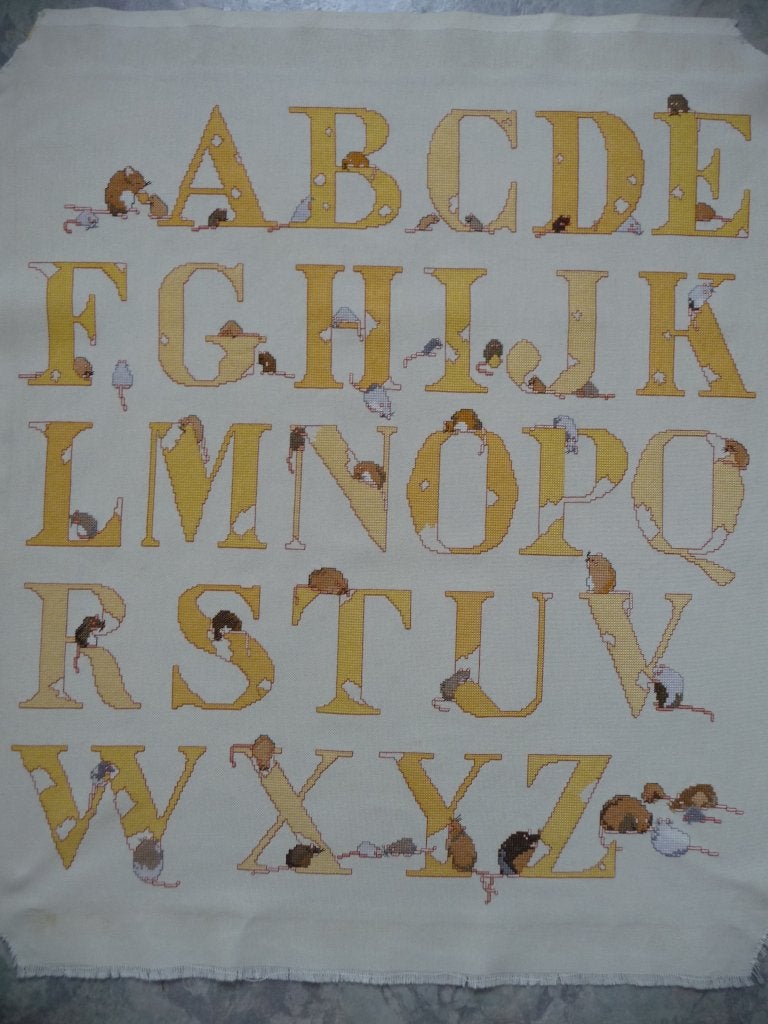 ABCDE
FGHIJK
LMNOPQ
RSTUV
WXYZ